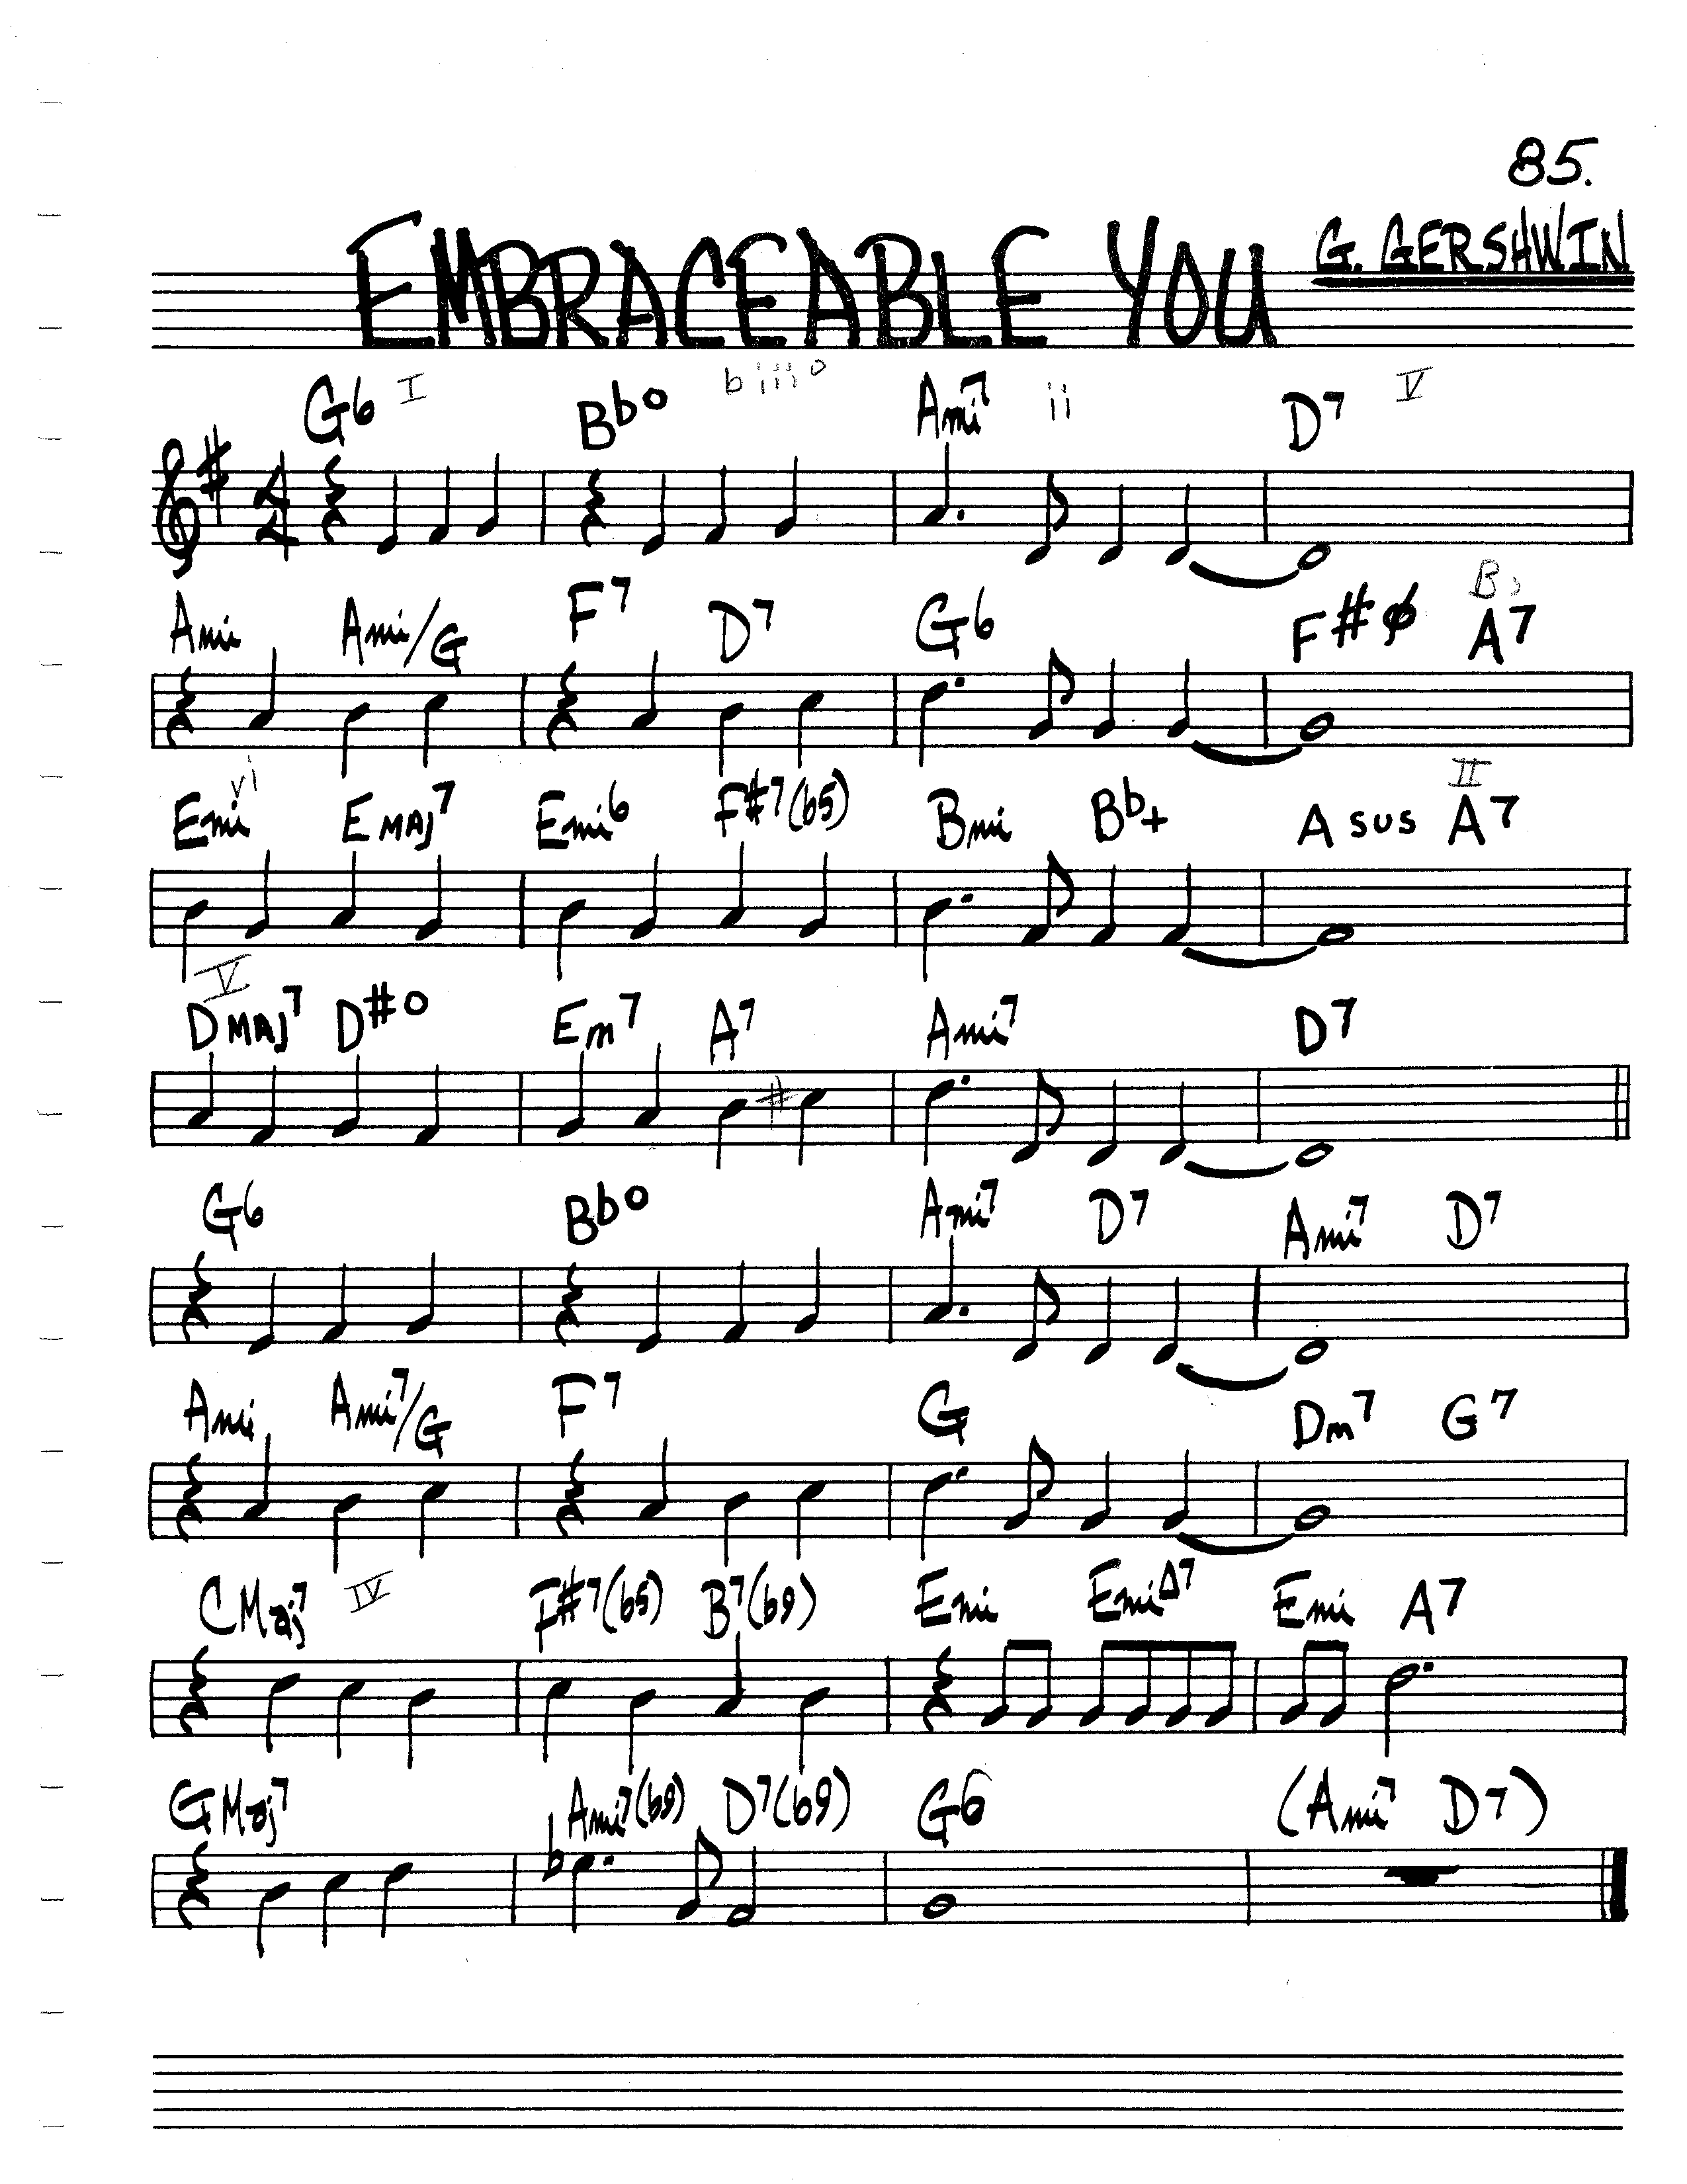 85.
EMBRACEABLE YOU G. GERSHWIN
G6 I Bb° biii° Ami7 ii D7 V
4/4
Ami Ami/G F7 D7 G6 F#ø A7
Emi vi EMAJ7 Emi6 F#7(b5) Bmi Bb+ Asus A7 II
DMAJ7 V D#° Em7 A7 Ami7 D7
G6 Bb° Ami7 D7 Ami7 D7
Ami Ami7/G F7 G Dm7 G7
CMaj7 IV F#7(b5) B7(b9) Emi EmiΔ7 Emi A7
GMaj7 Ami7(b9) D7(b9) G6 (Ami7 D7)